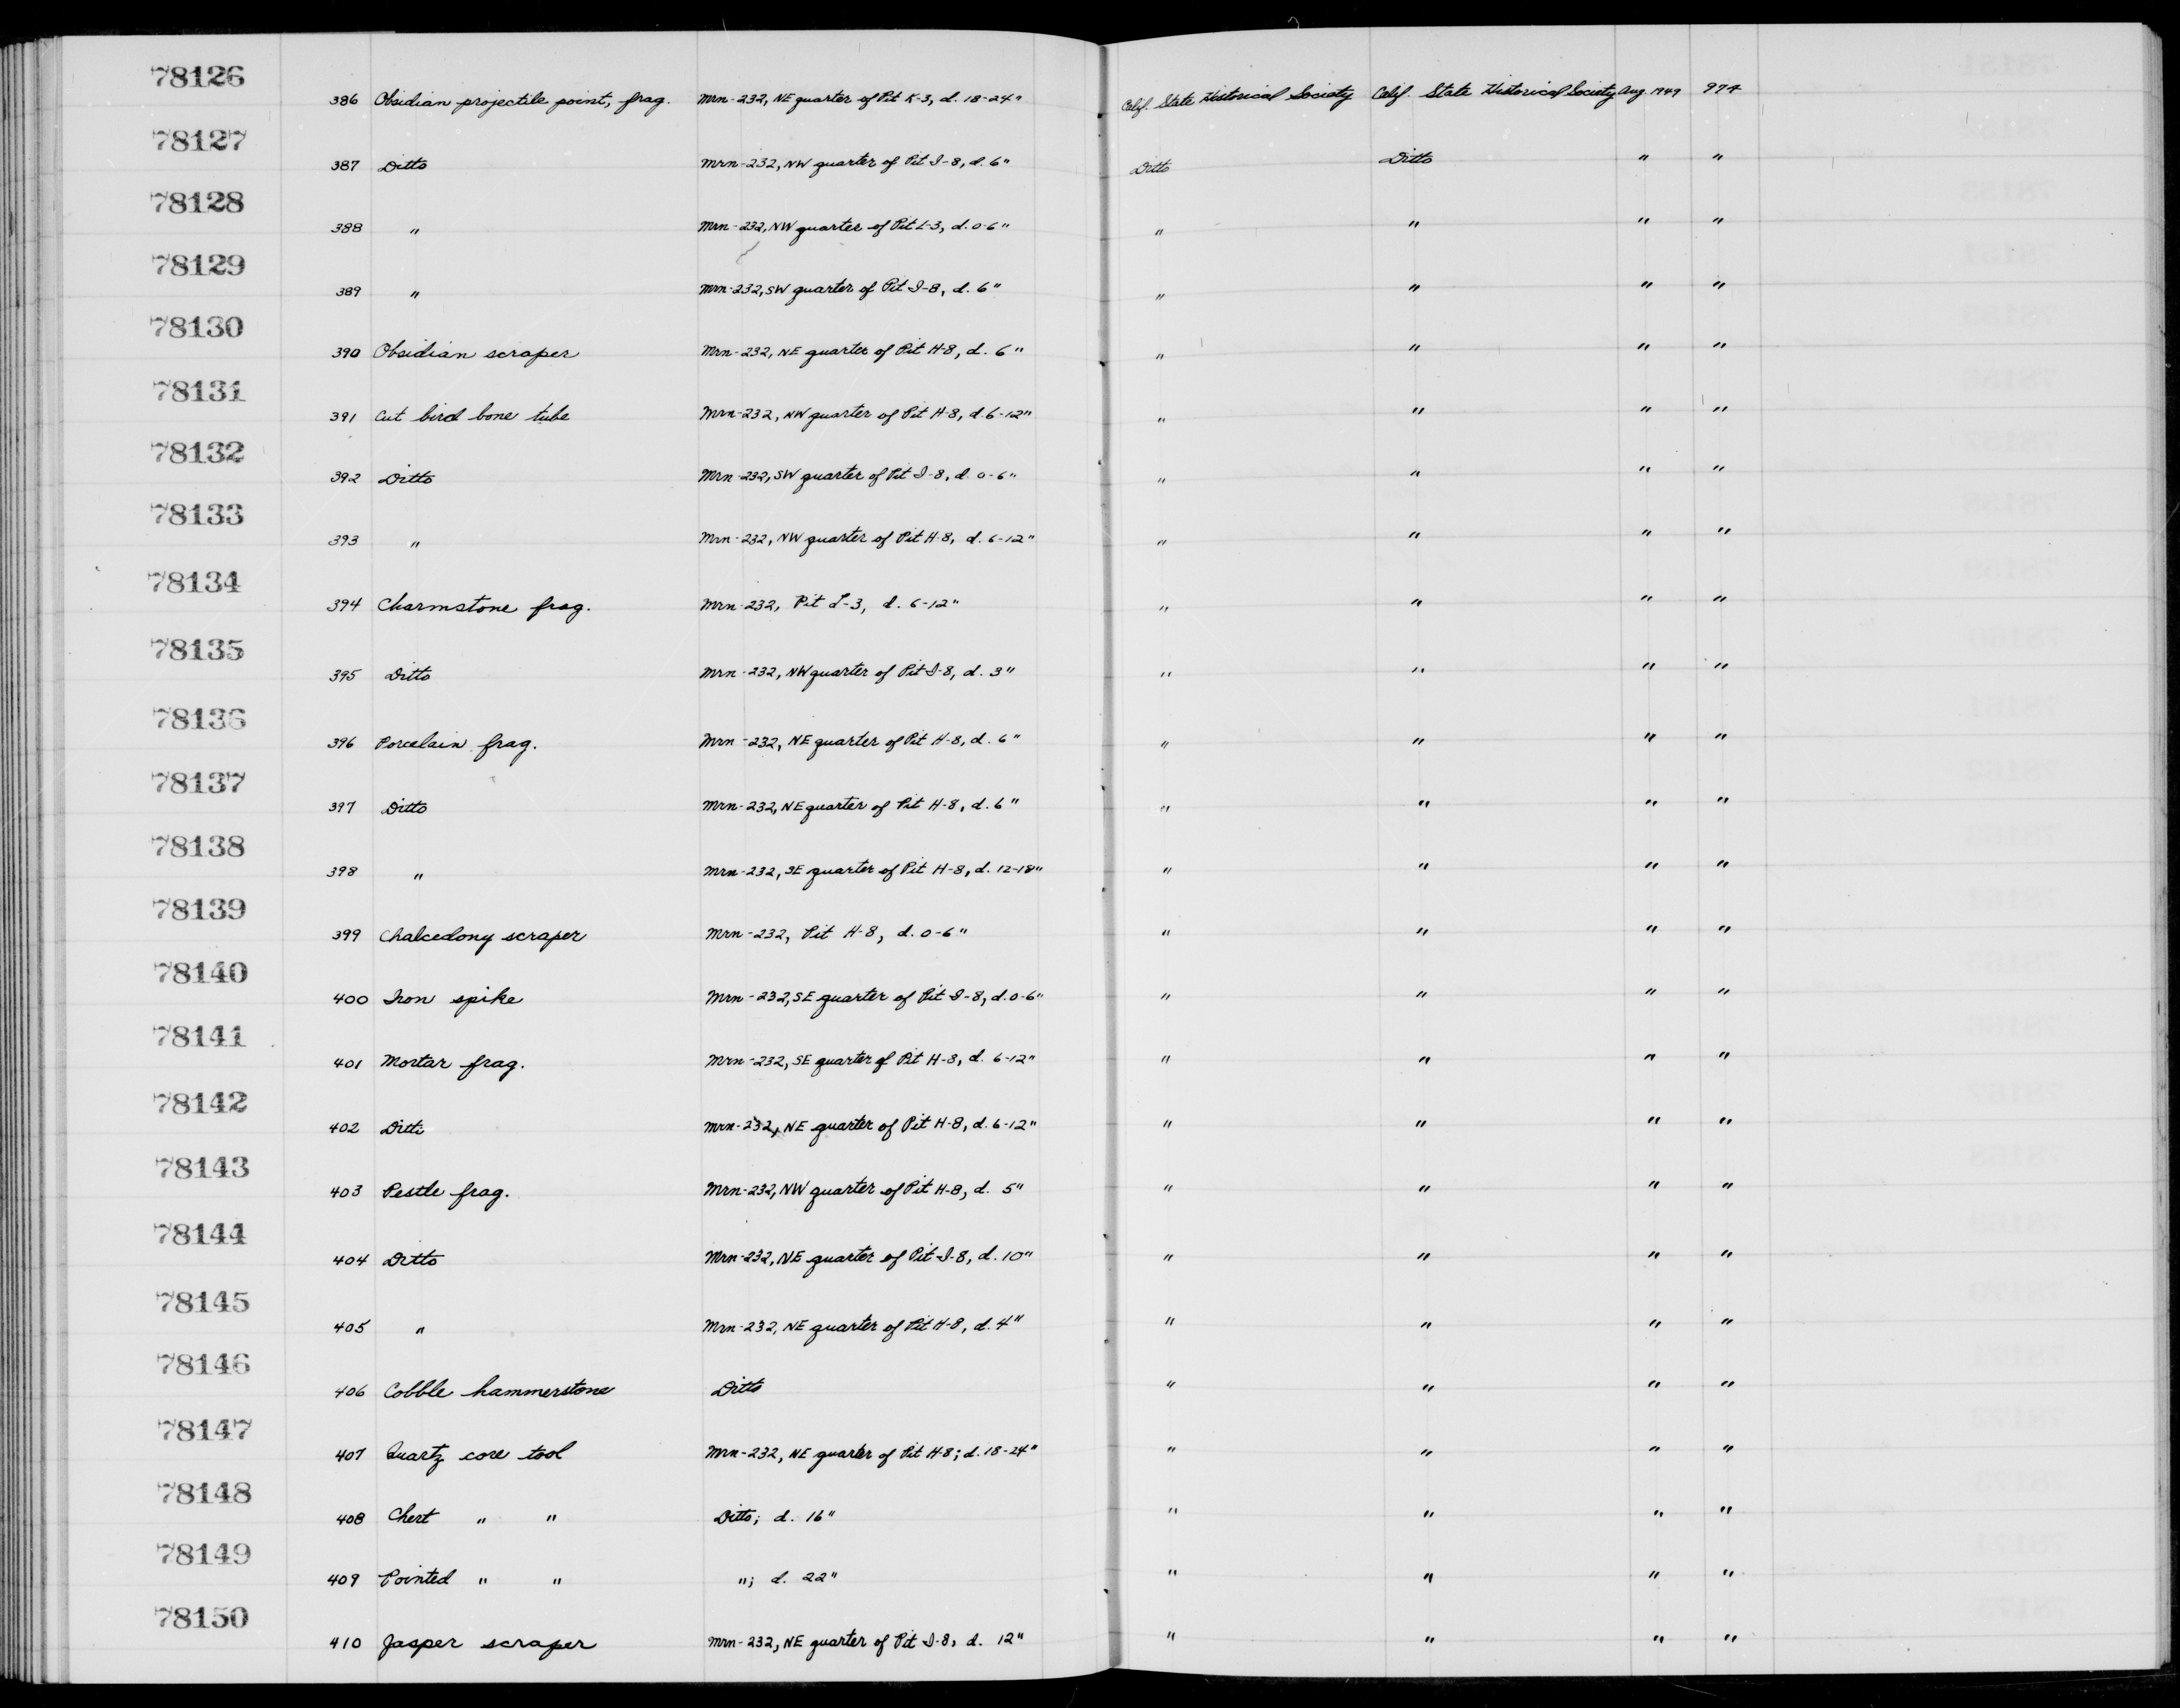 78126
386 Obsidian projectile point, frag. Mrn-232, NE quarter of Pit K-3, d. 18-24" Calif. State Historical Society Calif. State Historical Society Aug. 1949 974
78127
387 Ditto Mrn-232, NW quarter of Pit I-8, d. 6" Ditto Ditto " "
78128
388 " Mrn-232, NW quarter of Pit L-3, d. 0-6" " " " "
78129
389 " Mrn-232, SW quarter of Pit I-8, d. 6" " " " "
78130
390 Obsidian scraper Mrn-232, NE quarter of Pit H-8, d. 6" " " " "
78131
391 Cut bird bone tube Mrn-232, NW quarter of Pit H-8, d. 6-12" " " " "
78132
392 Ditto Mrn-232, SW quarter of Pit I-8, d. 0-6" " " " "
78133
393 " Mrn-232, NW quarter of Pit H-8, d. 6-12" " " " "
78134
394 Charmstone frag. Mrn-232, Pit L-3, d. 6-12" " " " "
78135
395 Ditto Mrn-232, NW quarter of Pit I-8, d. 3" " " " "
78136
396 Porcelain frag. Mrn-232, NE quarter of Pit H-8, d. 6" " " " "
78137
397 Ditto Mrn-232, NE quarter of Pit H-8, d. 6" " " " "
78138
398 " Mrn-232, SE quarter of Pit H-8, d. 12-18" " " " "
78139
399 Chalcedony scraper Mrn-232, Pit H-8, d. 0-6" " " " "
78140
400 Iron spike Mrn-232, SE quarter of Pit I-8, d. 0-6" " " " "
78141
401 Mortar frag. Mrn-232, SE quarter of Pit H-8, d. 6-12" " " " "
78142
402 Ditto Mrn-232, NE quarter of Pit H-8, d. 6-12" " " " "
78143
403 Pestle frag. Mrn-232, NW quarter of Pit H-8, d. 5" " " " "
78144
404 Ditto Mrn-232, NE quarter of Pit I-8, d. 10" " " " "
78145
405 " Mrn-232, NE quarter of Pit H-8, d. 4" " " " "
78146
406 Cobble hammerstone Ditto " " " "
78147
407 Quartz core tool Mrn-232, NE quarter of Pit H-8; d. 18-24" " " " "
78148
408 Chert " " Ditto; d. 16" " " " "
78149
409 Pointed " " "; d. 22" " " " "
78150
410 Jasper scraper Mrn-232, NE quarter of Pit I-8, d. 12" " " " "